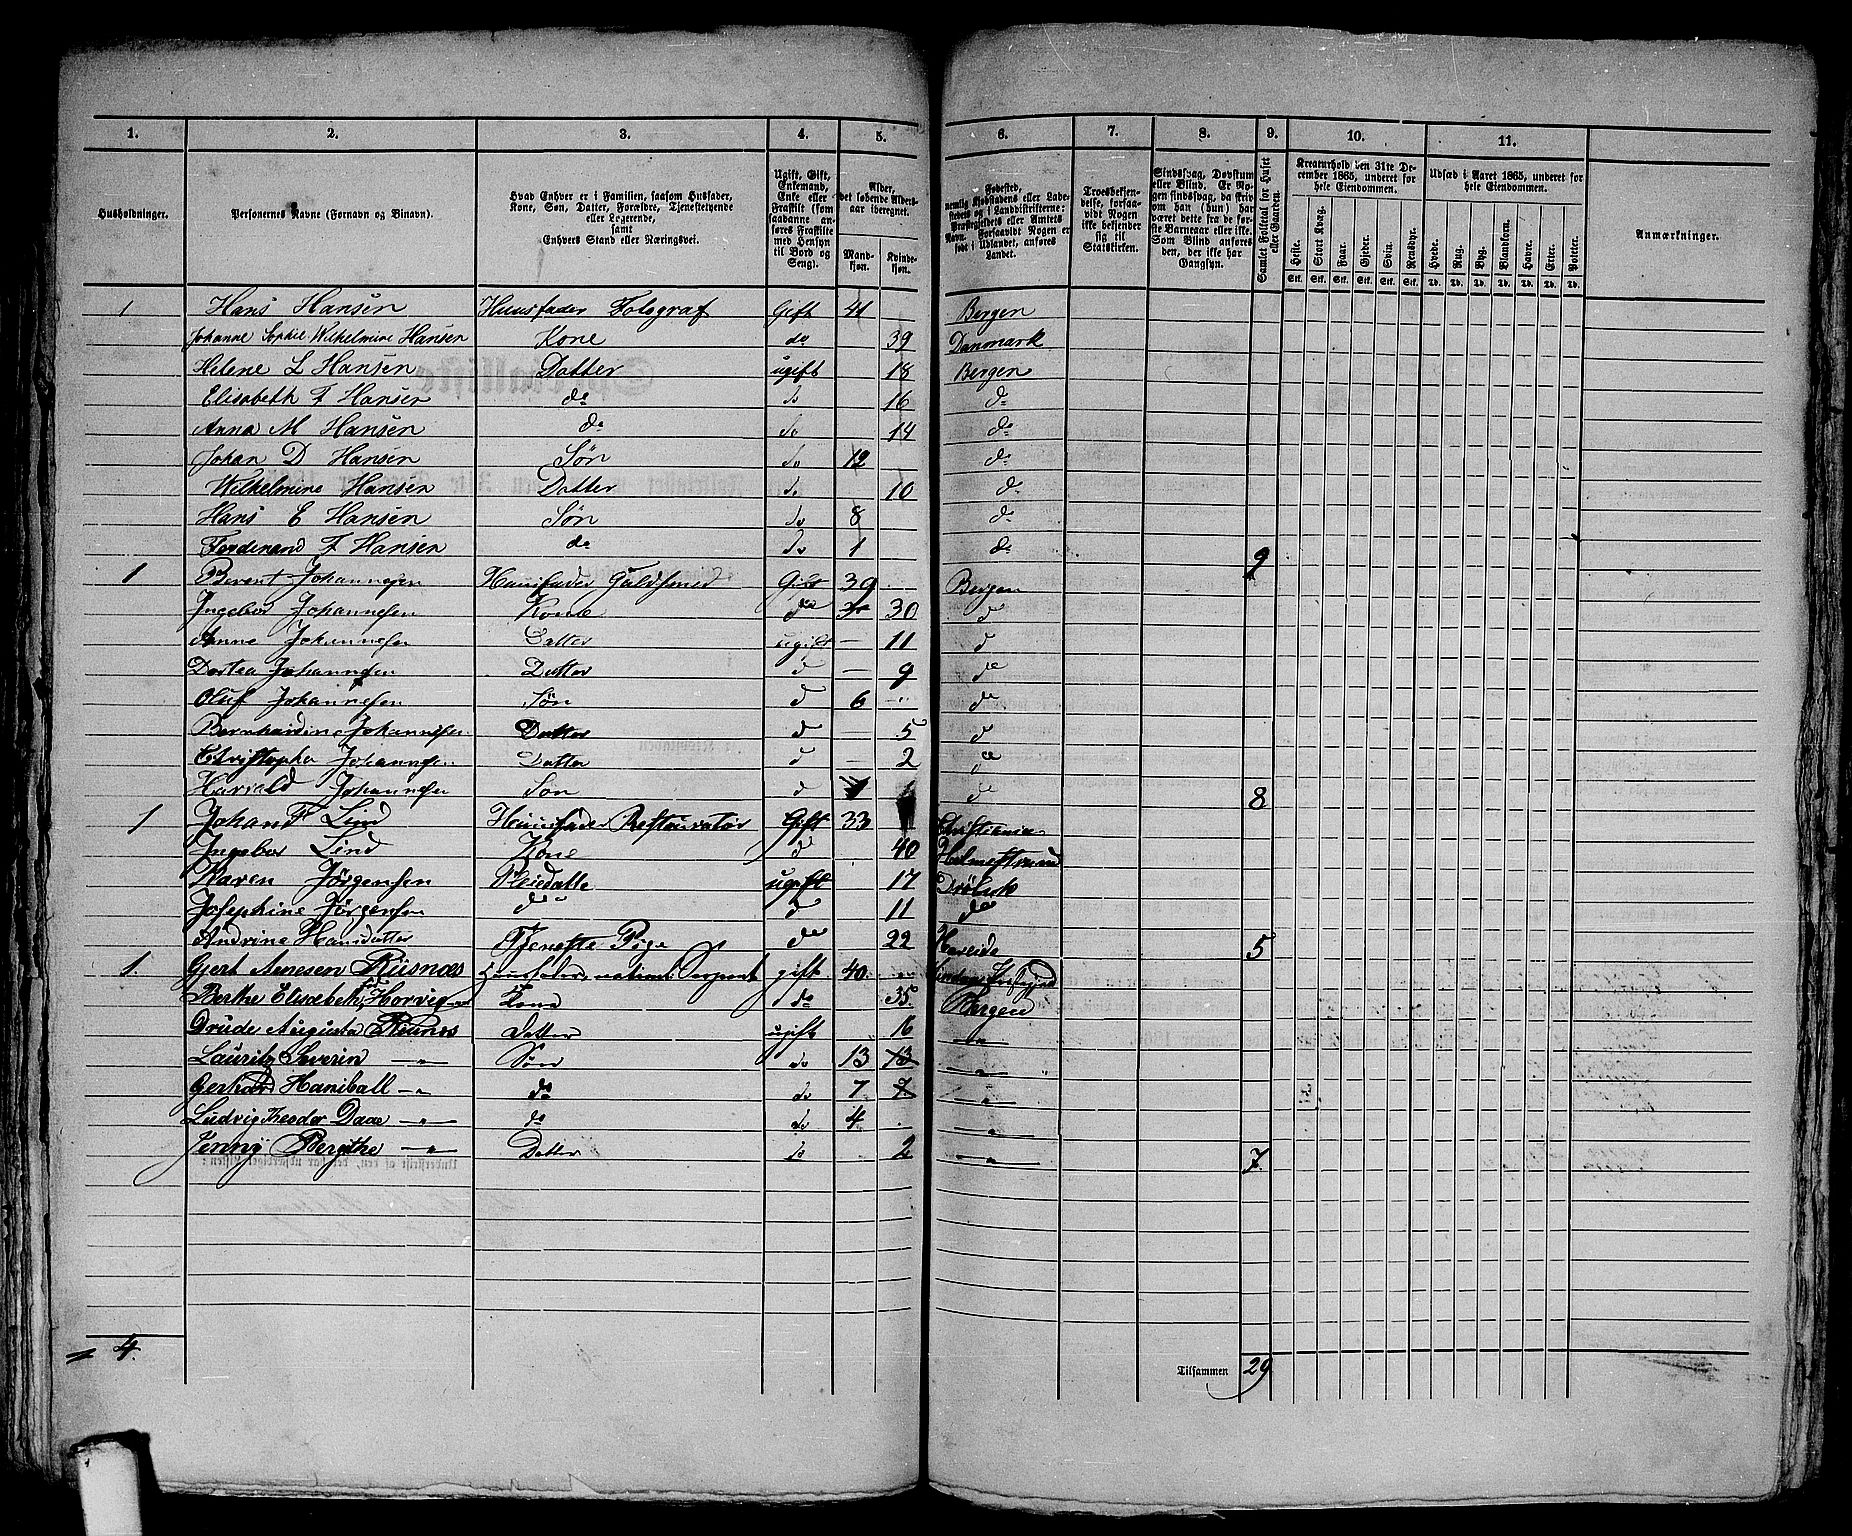 1. 2. 3. 4. 5. 6. 7. 8. 9. 10. 11.
Husholdninger.
Personernes Navne (Fornavn og Binavn).
Hvad Enhver er i Familien, saasom Husfader, Kone, Søn, Datter, Forældre, Tjenestetyende eller Logerende, samt Enhvers Stand eller Næringsvei.
Ugift, Gift, Enkemand, Enke eller Fraskilt (som saadanne anføres Fraskilte med Hensyn til Bord og Seng).
Alder, det løbende Alders-aar iberegnet.
Mandkjøn. Kvindekjøn.
Fødested, nemlig Kjøbstadens eller Ladestedets og i Landdistrikterne: Præstegjeldets eller Amtets Navn. Forsaavidt Nogen er født i Udlandet, anføres Landet.
Troesbekjendelse, forsaavidt Nogen ikke bekjender sig til Statskirken.
Sindssvag, Døvstum eller Blind. Er Nogen sindssvag, da skrives om han (hun) har været dette fra de første Barneaar eller ikke. Som Blind anføres den, der ikke har Gangsyn.
Samlet Folketal for Huset eller Gaarden.
Kreaturhold den 31te December 1865, underet for hele Eiendommen.
Heste. Stort Kvæg. Faar. Gjeder. Svin. Rensdyr.
Stk. Stk. Stk. Stk. Stk. Stk.
Udsæd i Aaret 1865, underet for hele Eiendommen.
Hvede. Rug. Byg. Blandkorn. Havre. Erter. Poteter.
Td. Td. Td. Td. Td. Td. Td.
Anmærkninger.
1 Hans Hansen Huusfader Fotograf Gift 41 Bergen
Johanne Sophie Wilhelmine Hansen Kone do 39 Danmark
Helene L Hansen Datter ugift 18 Bergen
Elisabeth F Hansen do do 16 do
Anna M Hansen do do 14 do
Johan D Hansen Søn do 12 do
Wilhelmine Hansen Datter do 10 do
Hans E Hansen Søn do 8 do
Ferdenand F Hansen do do 1 do 9
1 Berent Johannesen Huusfader Guldsmed Gift 39 Bergen
Ingebor Johannesen Kone do 30 d
Anne Johannesen Datter ugift — 11 d
Dortea Johannesen Datter d — 9 do
Oluf Johannesen Søn d 6 do
Bernhardine Johannesen Datter d — 5 d
Christopha Johannesen Datter d — 2 do
Harald Johannesen Søn d 1 do 8
1 Johan F Lind Huusfader Restauratør Gift 33 Christiania
Ingebor Lind Kone do 40 Holmestrand
Karen Jörgensen Pleiedatte ugift 17 Drøbak
Josephine Jörgensen do d 11 do
Andrine Hansdatter Tjeneste Pige do 22 Hareide 5
1. Gjert Arnesen Riisnæs Huusfader, gift 40
Berthe Elisabeth Horvig Kone do 35. Bergen
Drude Augusta Risnes Datter ugift 16 — " —
Lauritz Severin — " — Søn do 13 13 — " —
Gerhard Haniball — " do do 7 7 — " —
Ludvig Theodor Daae — " — do do 4 — " —
Jenny Bergithe — " — Datter do 2 — " — 7
4.
Tilsammen 29